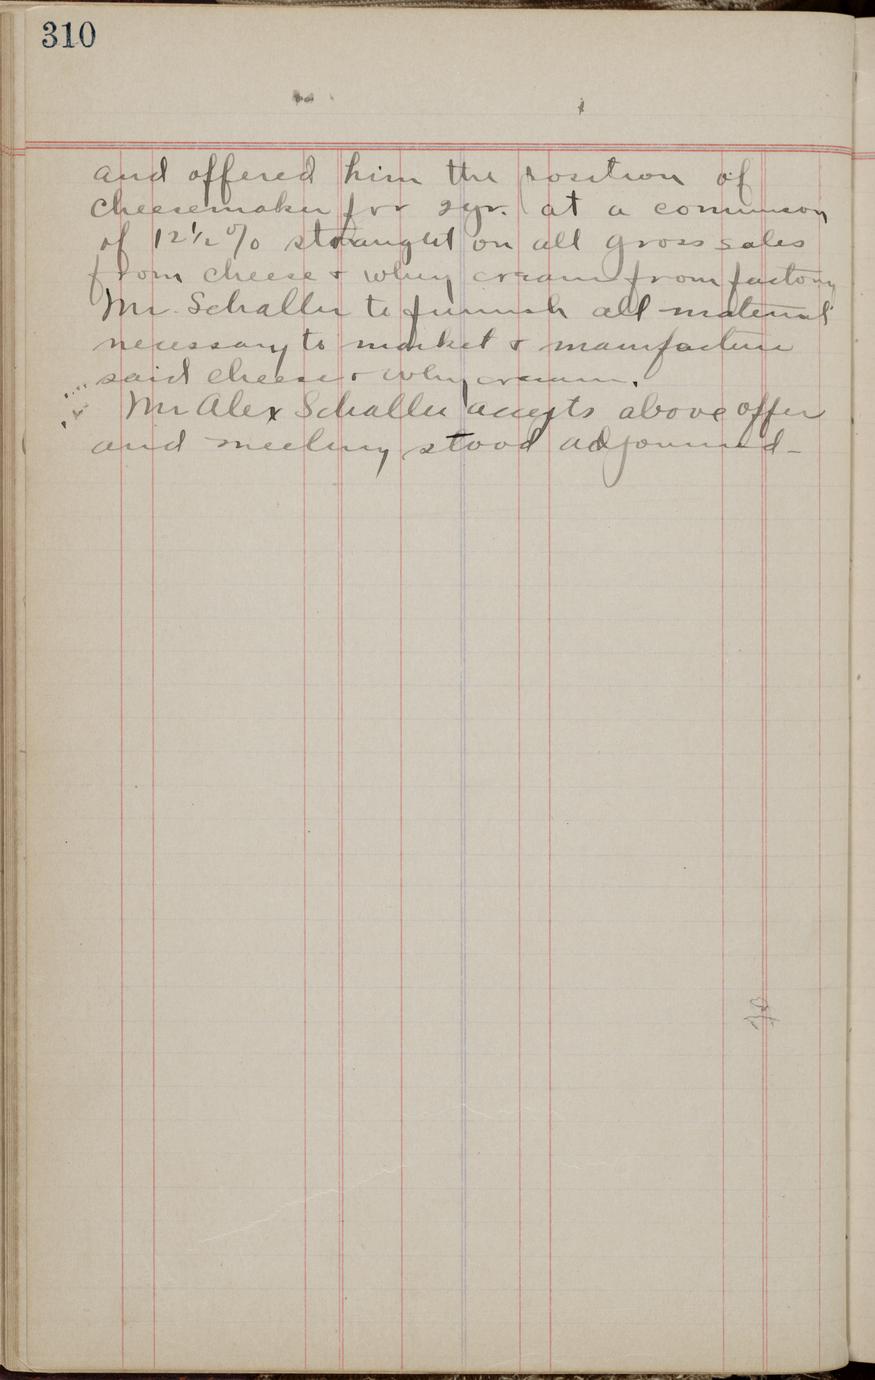 310
and offered him the position of
cheesemaker for 2yr. at a commission
of 12½% straught on all gross sales
from cheese & whey cream from factory
Mr. Schaller to furnish all material
necessary to market & manufacture
said cheese & whey cream.
Mr Alex Schaller accepts above offer
and meeting stood adjourned-